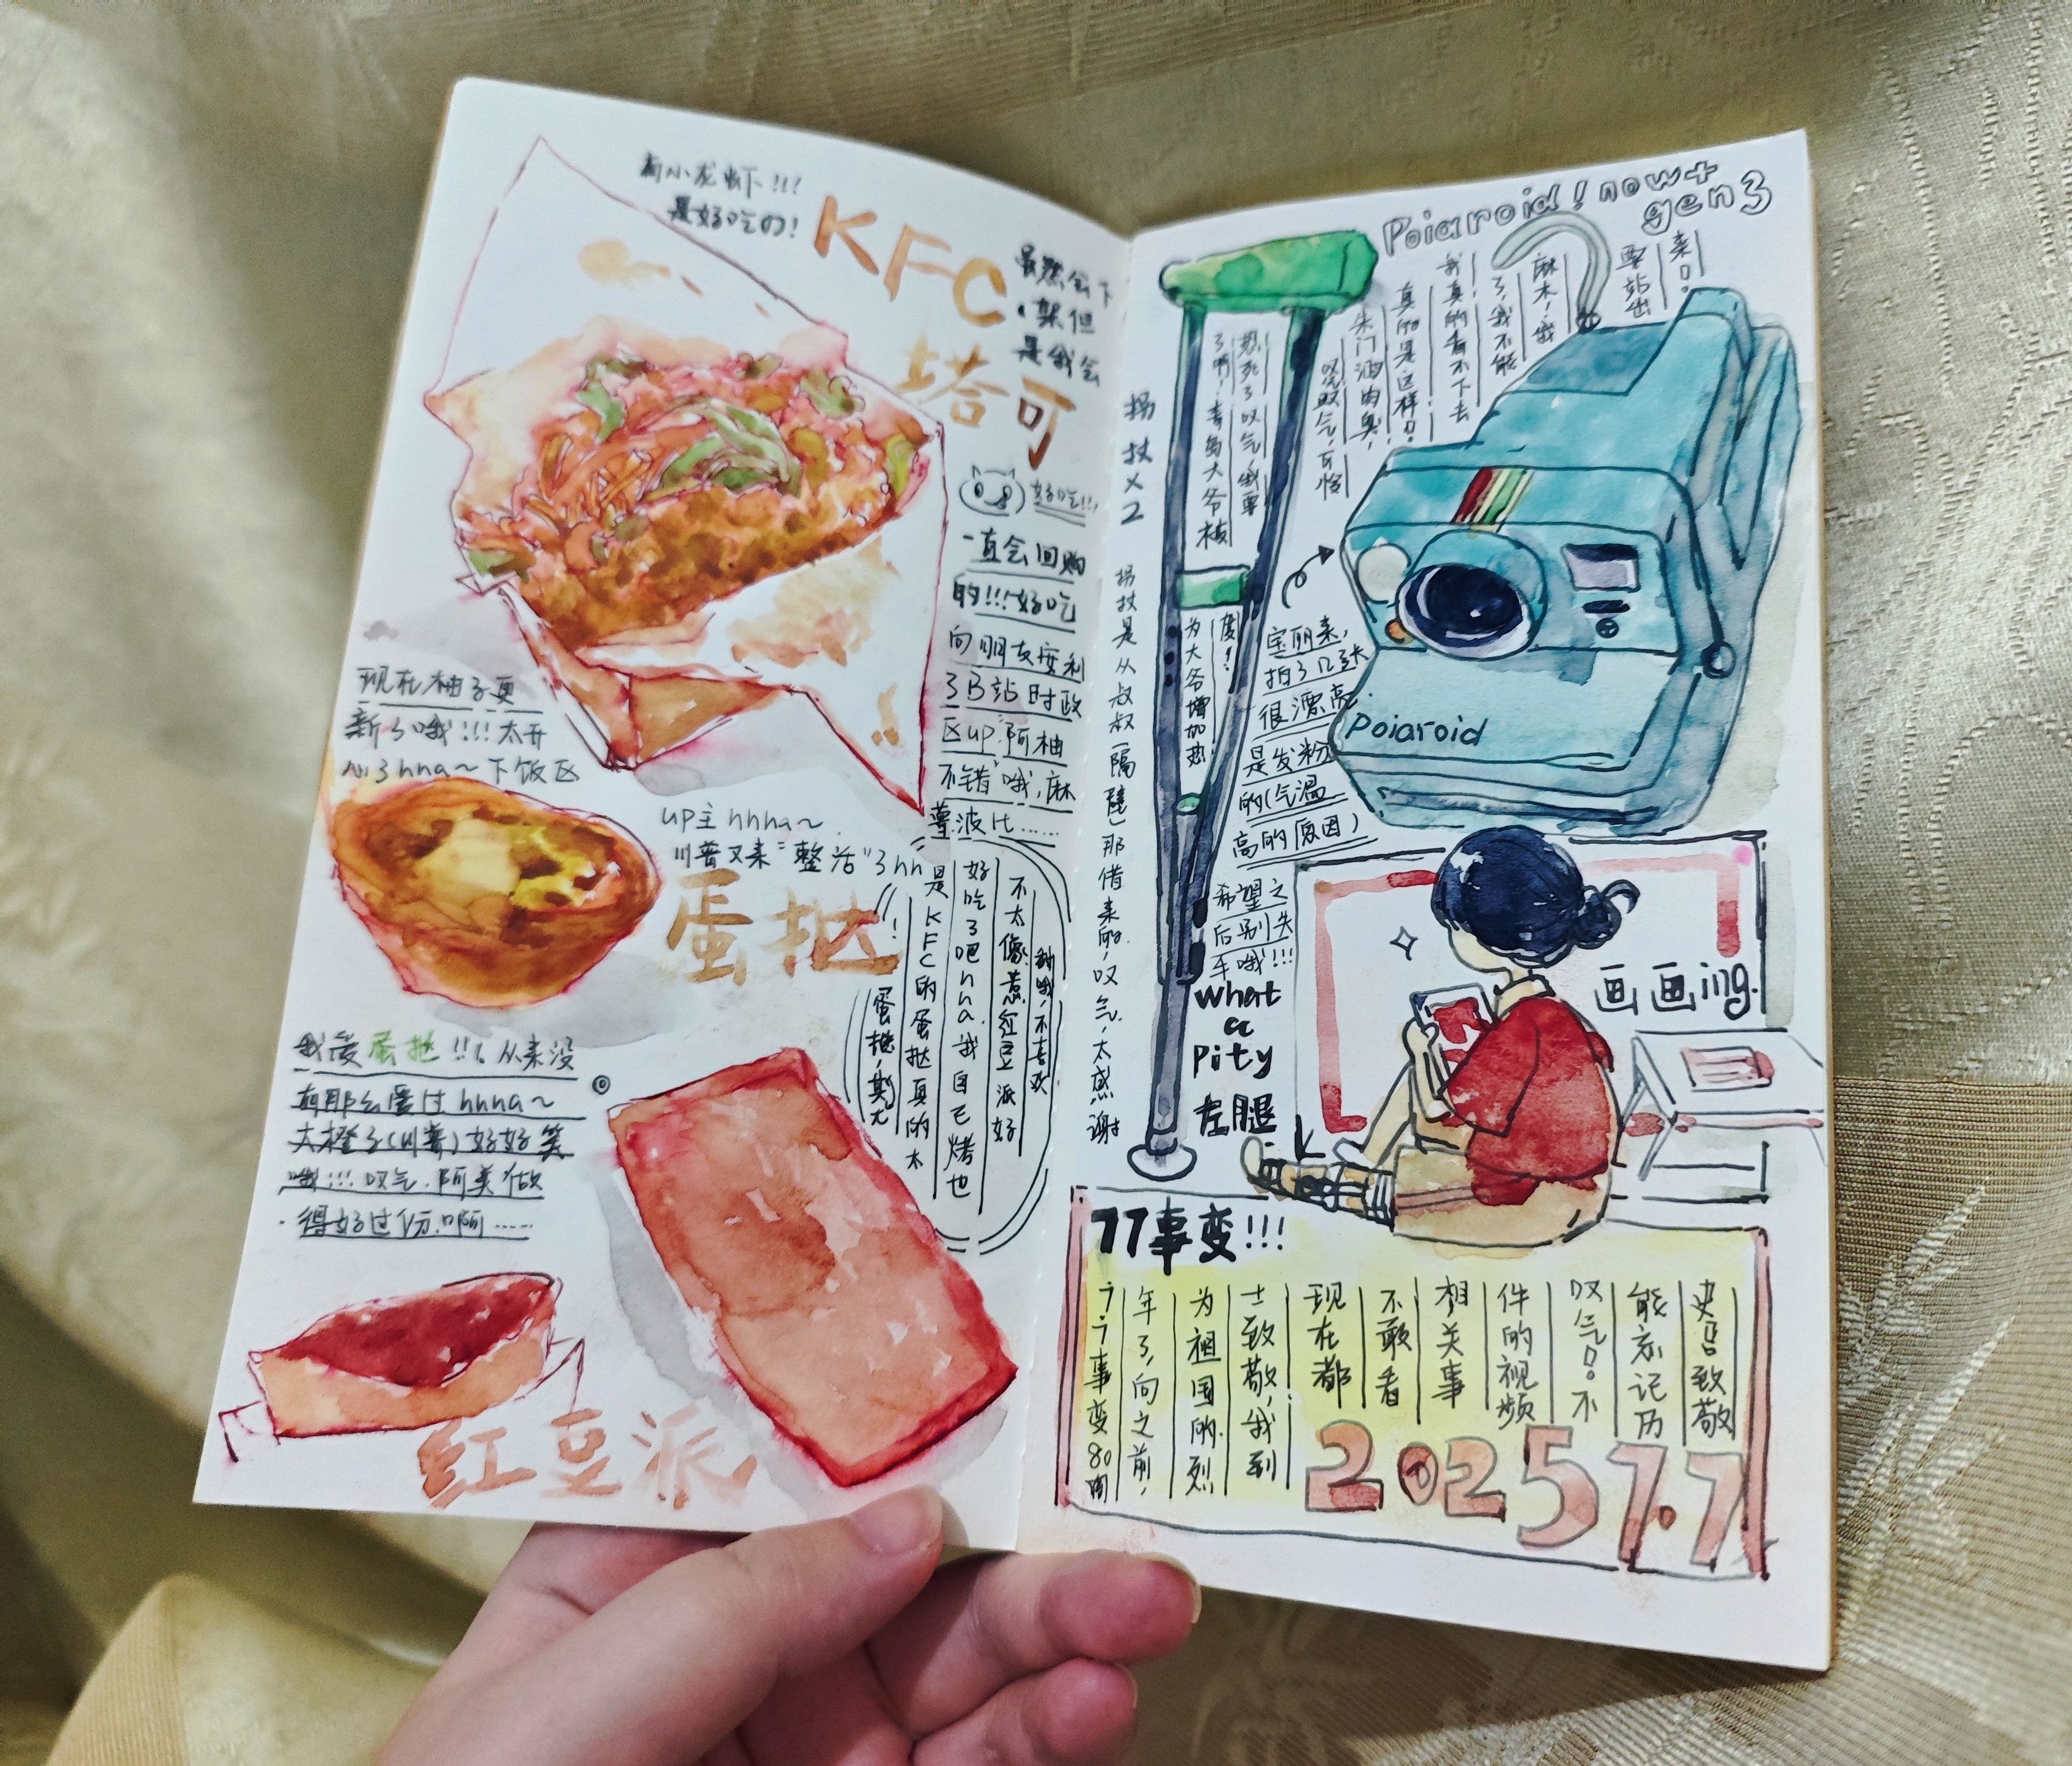 有小龙虾!!!
是好吃的!
KFC
塔可
虽然会下
架但
是我会
好吃!!!
一直会回购
的!!!好吃
向朋友安利
了B站时政
区up:阿柚
不错哦,麻
薯波比……
现在柚子更
新了哦!!!太开
心了hhha~下饭区
up主hhha~
川普又来"整活"了hh
蛋挞
我爱蛋挞!!!从来没
有那么爱过hhha~
大橙子(川普)好好笑
哦!!!叹气,阿美做
得好过份啊……
不喜欢
不太像惹红豆派好
好吃了吧hha我自己烤也
是KFC的蛋挞真的太
蛋挞,
红豆派
Poiaroid!now+
gen3
来!
要站出
麻木!我
了,我不能
我真的看不下去
真的是这样!
朱门酒肉臭,
叹气叹气,可怜
热死了叹气,我要
了啊!青岛大爷被
度!
为大爷增加热
拐杖×2
拐杖是从叔叔(隔壁)那借来的,叹气,太感谢
宝丽来,
拍了几张
很漂亮
是发粉
的(气温
高的原因)
Poiaroid
希望之
后别失
手哦!!!
what
a
pity
左腿
画画ing.
77事变!!!
七七事变80周
年了,向之前,
为祖国的烈
士致敬,我到
现在都
不敢看
相关事
件的视频
叹气!不
能忘记历
史!致敬
2025 7.7